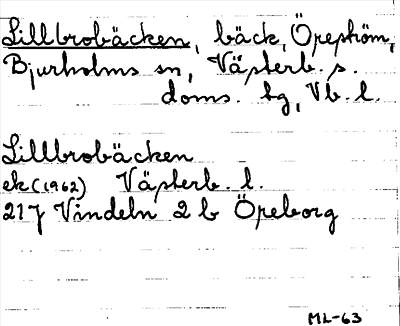 Lillbrobäcken, bäck, Öreström,
Bjurholms sn, Västerb. s.
doms. tg, Vb. l.
Lillbrobäcken
ek (1962) Västerb. l.
217 Vindeln 2 b Öreborg
ML-63